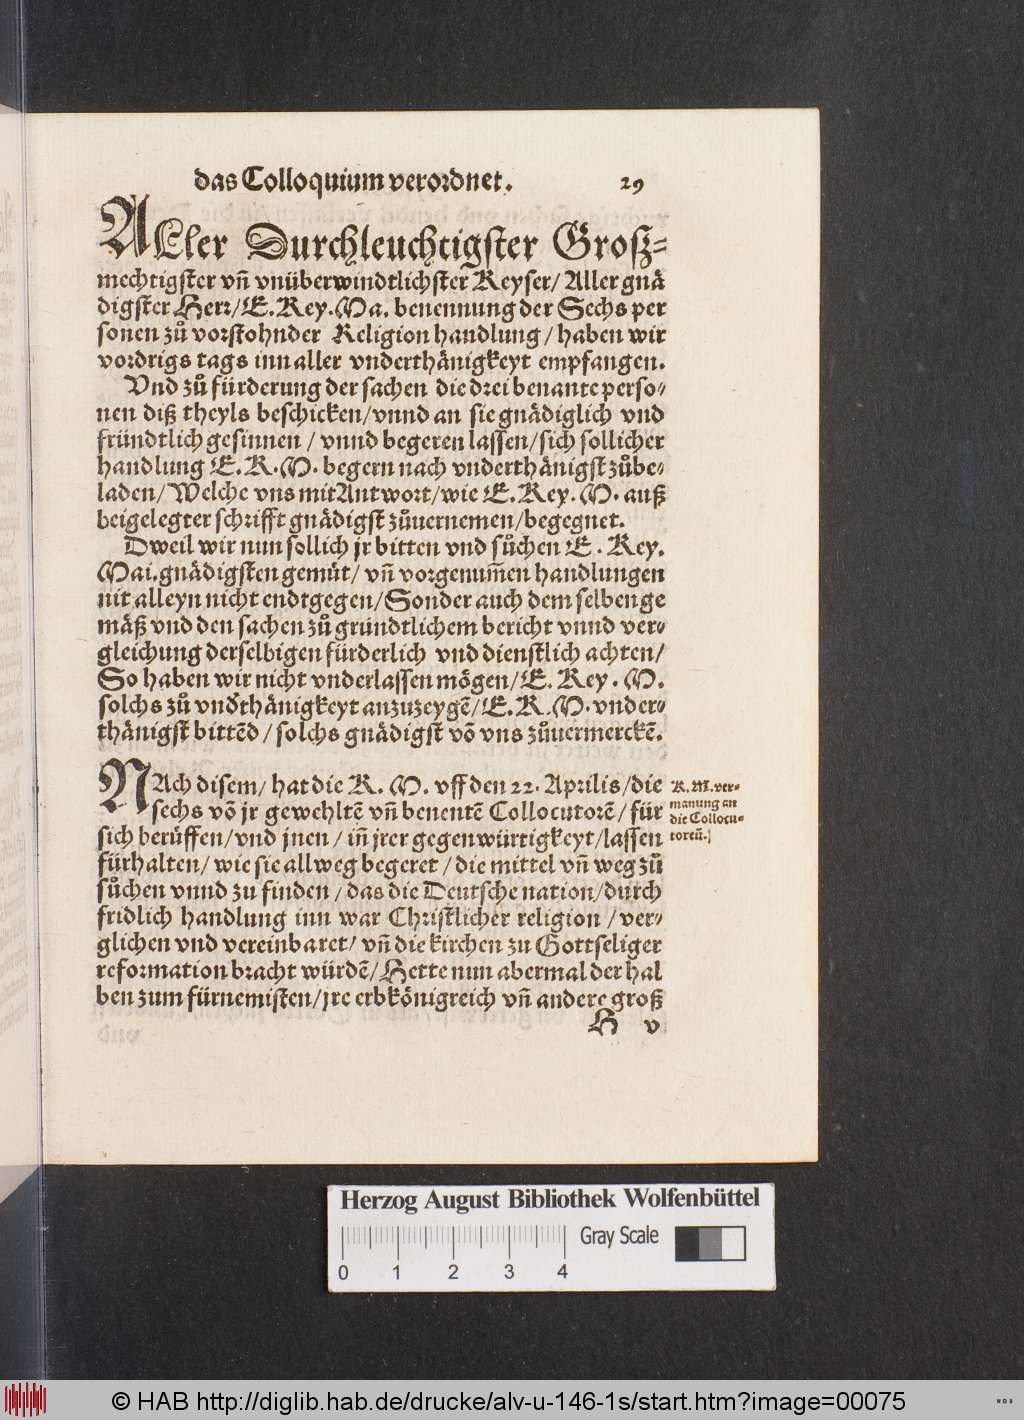 das Colloquium verordnet. 29
ALler Durchleuchtigster Groß-
mechtigster vñ vnüberwindtlichster Keyser/ Aller gnä
digster Herr/ E. Key. Ma. benennung der Sechs per
sonen zů vorstohnder Religion handlung / haben wir
vordrigs tags inn aller vnderthänigkeyt empfangen.
Vnd zů fürderung der sachen die drei benante perso-
nen diß theyls beschicken/ vnnd an sie gnädiglich vnd
fründtlich gesinnen / vnnd begeren lassen/ sich sollicher
handlung E. K. M. begern nach vnderthänigst zůbe-
laden/ Welche vns mit Antwort/ wie E. Key. M. auß
beigelegter schrifft gnädigst zůuernemen/ begegnet.
Dweil wir nun sollich jr bitten vnd sůchen E. Key.
Mai. gnädigsten gemüt/ vñ vorgenum̃en handlungen
nit alleyn nicht endtgegen/ Sonder auch dem selben ge
mäß vnd den sachen zů gründtlichem bericht vnnd ver-
gleichung derselbigen fürderlich vnd dienstlich achten/
So haben wir nicht vnderlassen mögen/ E. Key. M.
solchs zů vnd̃thänigkeyt anzuzeygẽ/ E. K. M. vnder-
thänigst bittẽd / solchs gnädigst võ vns zůuermerckẽ.
NAch disem/ hat die K. M. vff den 22. Aprilis/ die
sechs võ jr gewehltẽ vñ benentẽ Collocutorẽ/ für
sich berüffen/ vnd jnen / iñ jrer gegenwürtigkeyt/ lassen
fürhalten/ wie sie allweg begeret / die mittel vñ weg zů
sůchen vnnd zu finden / das die Deutsche nation/ durch
fridlich handlung inn war Christlicher religion / ver-
glichen vnd vereinbaret/ vñ die kirchen zu Gottseliger
reformation bracht würdẽ/ Hette nun abermal der hal
ben zum fürnemisten/ jre erbkönigreich vñ andere groß
H v
K. M. ver-
manung an
die Collocu-
torẽn.
Herzog August Bibliothek Wolfenbüttel
0 1 2 3 4 Gray Scale
© HAB http://diglib.hab.de/drucke/alv-u-146-1s/start.htm?image=00075